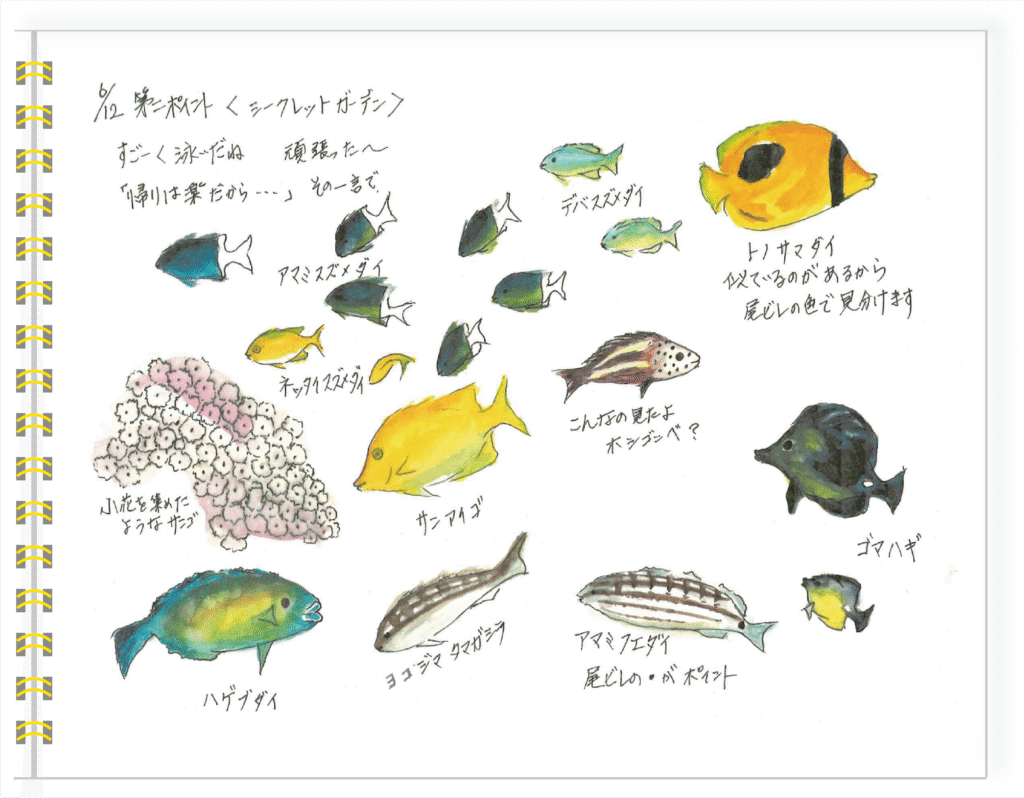 6/12 第二ポイント〈シークレットガーデン〉
すごーく泳いだね 頑張った〜
「帰りは楽だから・・・」その一言で
デバスズメダイ
アマミスズメダイ
トノサマダイ
似ているのがあるから
尾ビレの色で見分けます
ネッタイスズメダイ
こんなの見たよ
ホシゴンベ?
小花を集めた
ようなサンゴ
サンアイゴ
ゴマハギ
ハゲブダイ
ヨコジマタマガシラ
アマミフエダイ
尾ビレの・がポイント